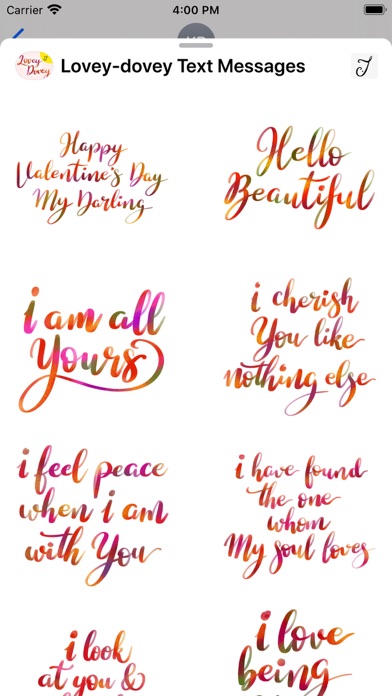 Carrier 4:00 PM
Lovey Dovey J Lovey-dovey Text Messages J
Happy
Valentine's Day
My Darling
Hello
Beautiful
i am all
Yours
i cherish
You like
nothing else
i feel peace
when i am
with You
i have found
the one
whom
My soul loves
i look
at you &
i love
being